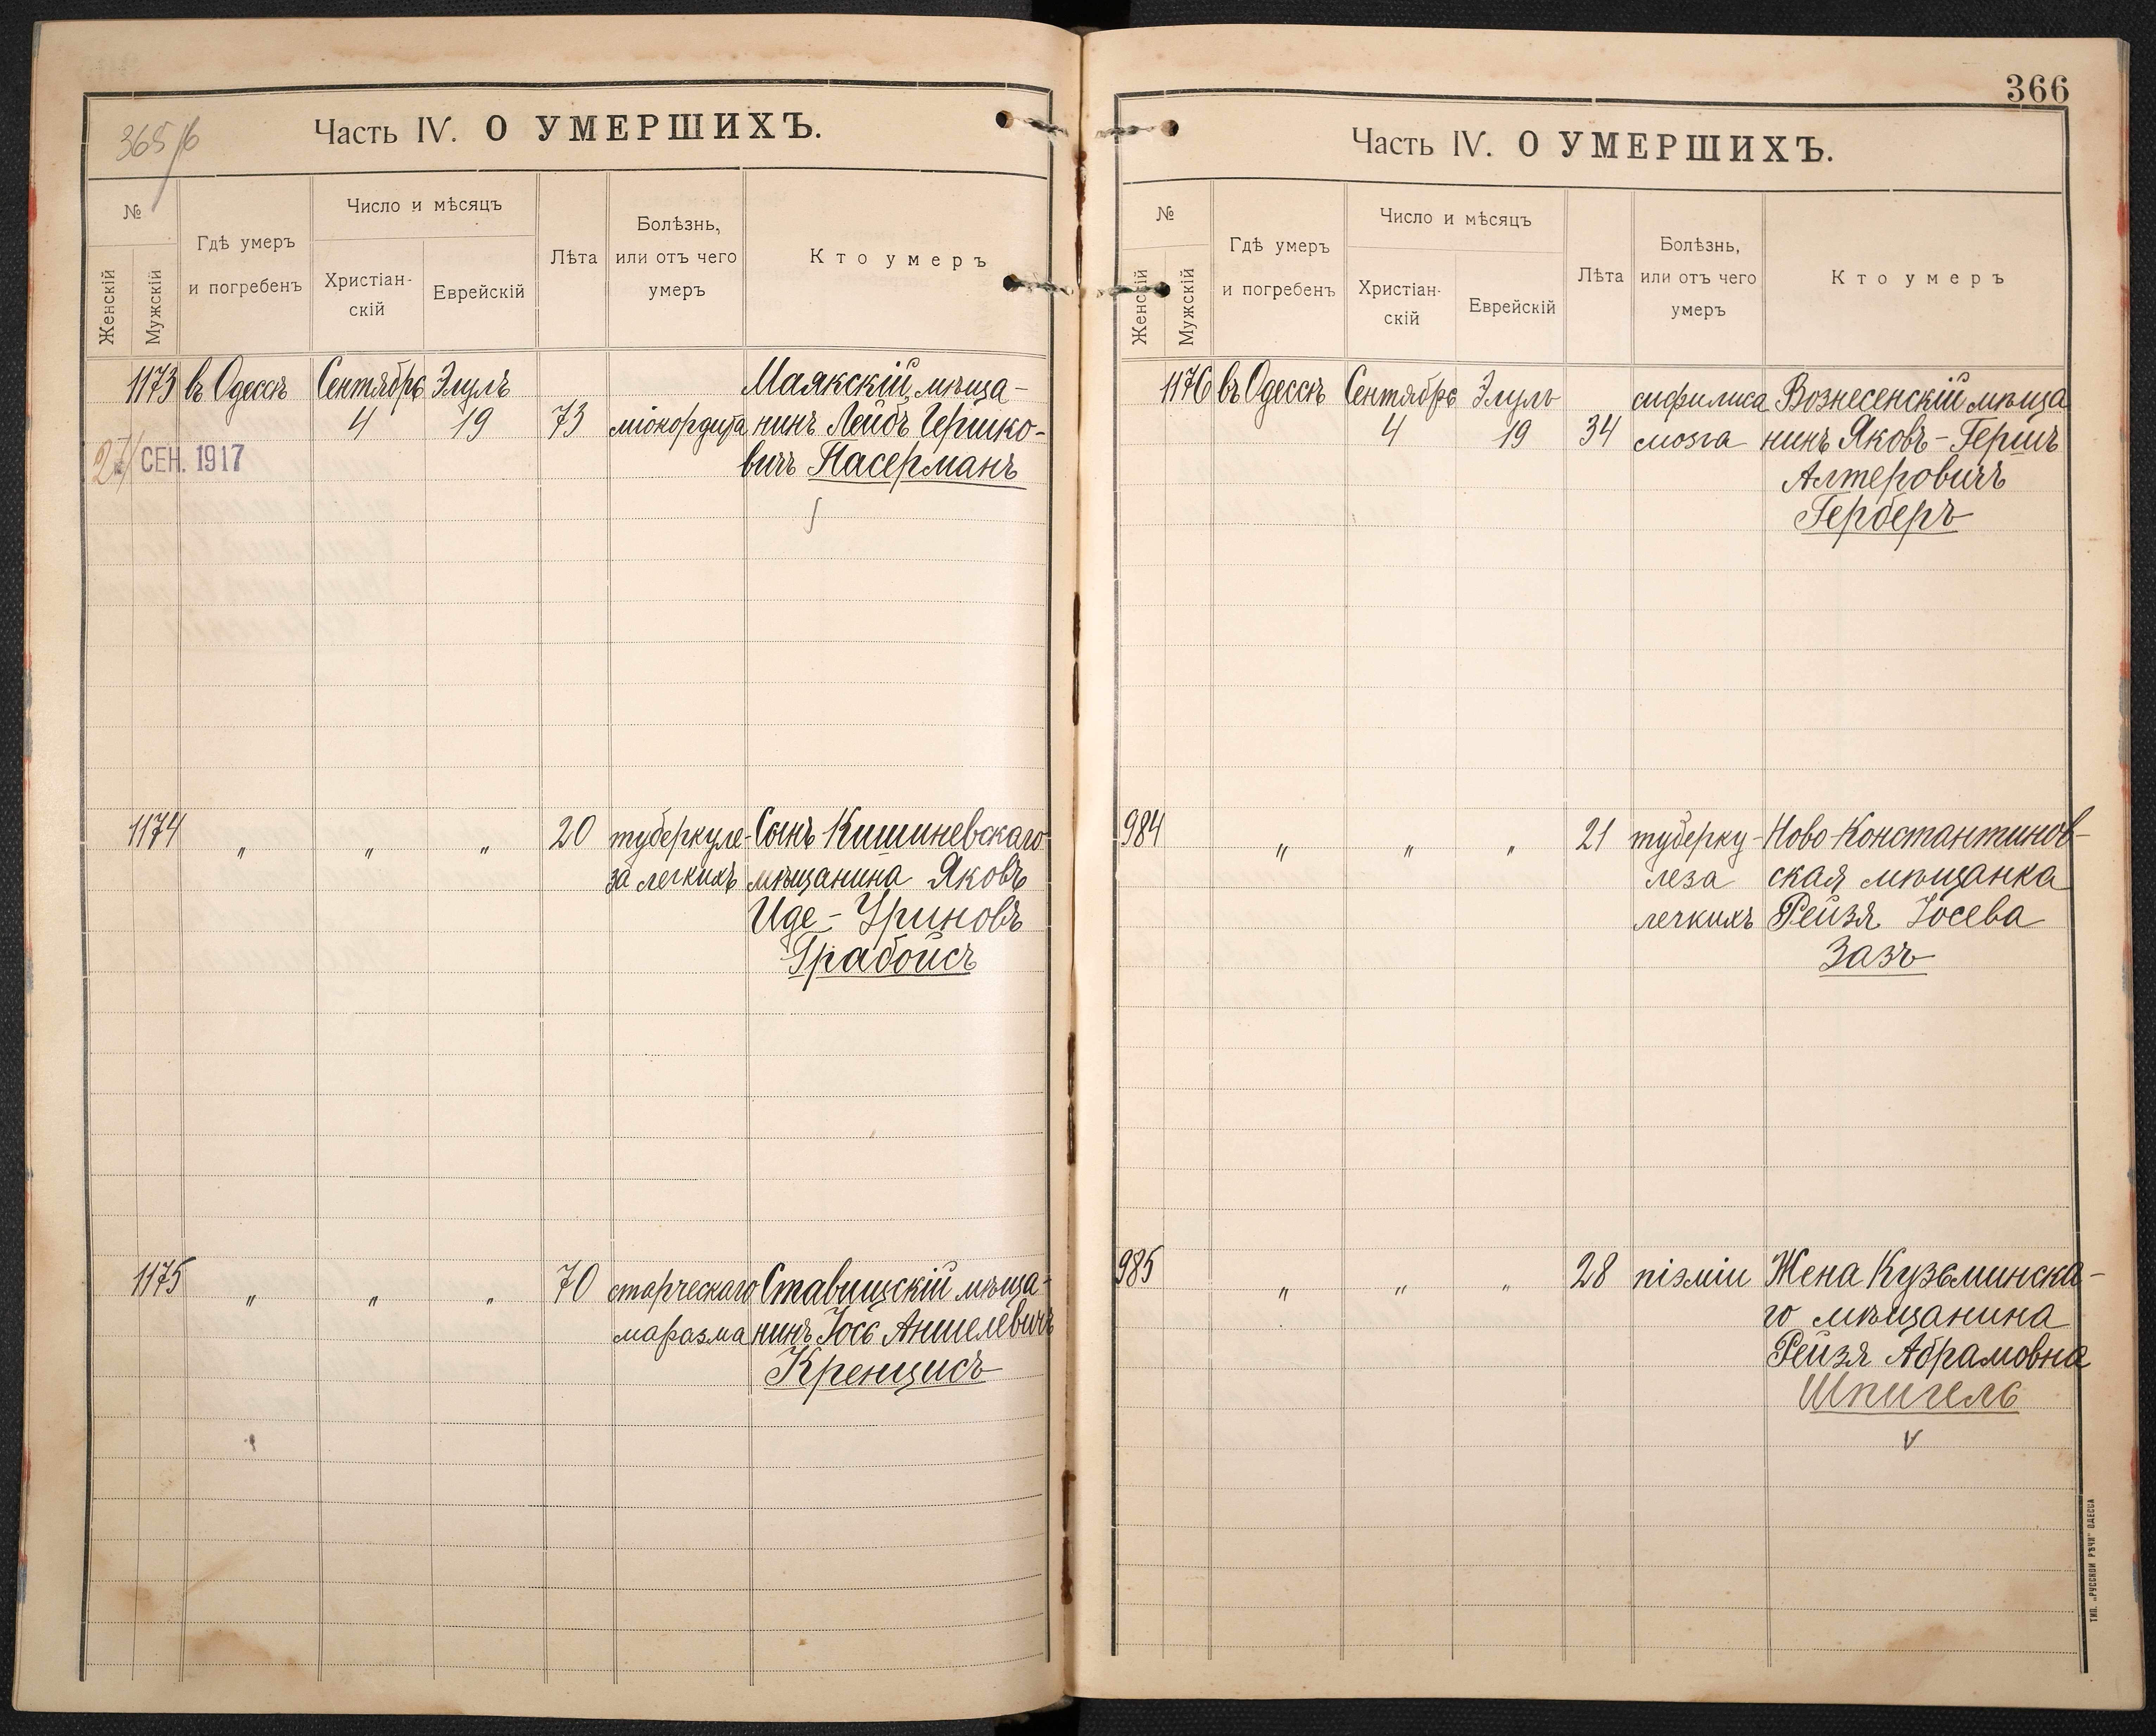 365/б
Часть IV. О УМЕРШИХЪ.
№
Женскій
Мужскій
Гдѣ умеръ
и погребенъ
Число и мѣсяцъ
Христіан-
скій
Еврейскій
Лѣта
Болѣзнь,
или отъ чего
умеръ
Кто умеръ
1173 въ Одессѣ Сентябрь Элулъ Маякскій мѣща-
4 19 73 міокордита нинъ Лейбъ Гершко-
27 СЕН. 1917
вичъ Пасерманъ
1174 „ „ „ 20 туберкуле- Сынъ Кишиневскаго
за легкихъ мѣщанина Яковъ
Иде-Уриновъ
Грабойсъ
1175 „ „ „ 70 старческаго Ставищскій мѣща-
маразма нинъ Іось Аншелевичъ
Кренцисъ
366
Часть IV. О УМЕРШИХЪ.
№
Женскій
Мужскій
Гдѣ умеръ
и погребенъ
Число и мѣсяцъ
Христіан-
скій
Еврейскій
Лѣта
Болѣзнь,
или отъ чего
умеръ
Кто умеръ
1176 въ Одессѣ Сентябрь Элулъ сифилиса Вознесенскій мѣща
4 19 34 мозга нинъ Яковъ-Гершъ
Алтеровичъ
Герберъ
984 „ „ „ 21 туберку- Ново-Константинов-
леза ская мѣщанка
легкихъ Рейзя Іосева
Зазъ
985 „ „ „ 28 піэміи Жена Кузьминска-
го мѣщанина
Рейзя Абрамовна
Шпигель
ТИП. „РУССКОЙ РѢЧИ" ОДЕССА